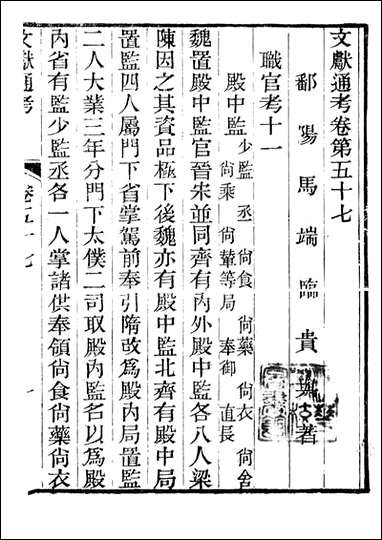 文獻通考卷第五十七
鄱陽馬端臨貴與著
職官考十一
殿中監 少監 丞 尚食 尚藥 尚衣 尚舍
尚乘 尚輦等局 奉御 直長
魏置殿中監官晉宋並同齊有內外殿中監各八人梁
陳因之其資品極下後魏亦有殿中監北齊有殿中局
置監四人屬門下省掌駕前奉引隋改爲殿內局置監
二人大業三年分門下太僕二司取殿內監名以爲殿
內省有監少監丞各一人掌諸供奉領尙食尙藥尙衣
文獻通考 卷五十七 一